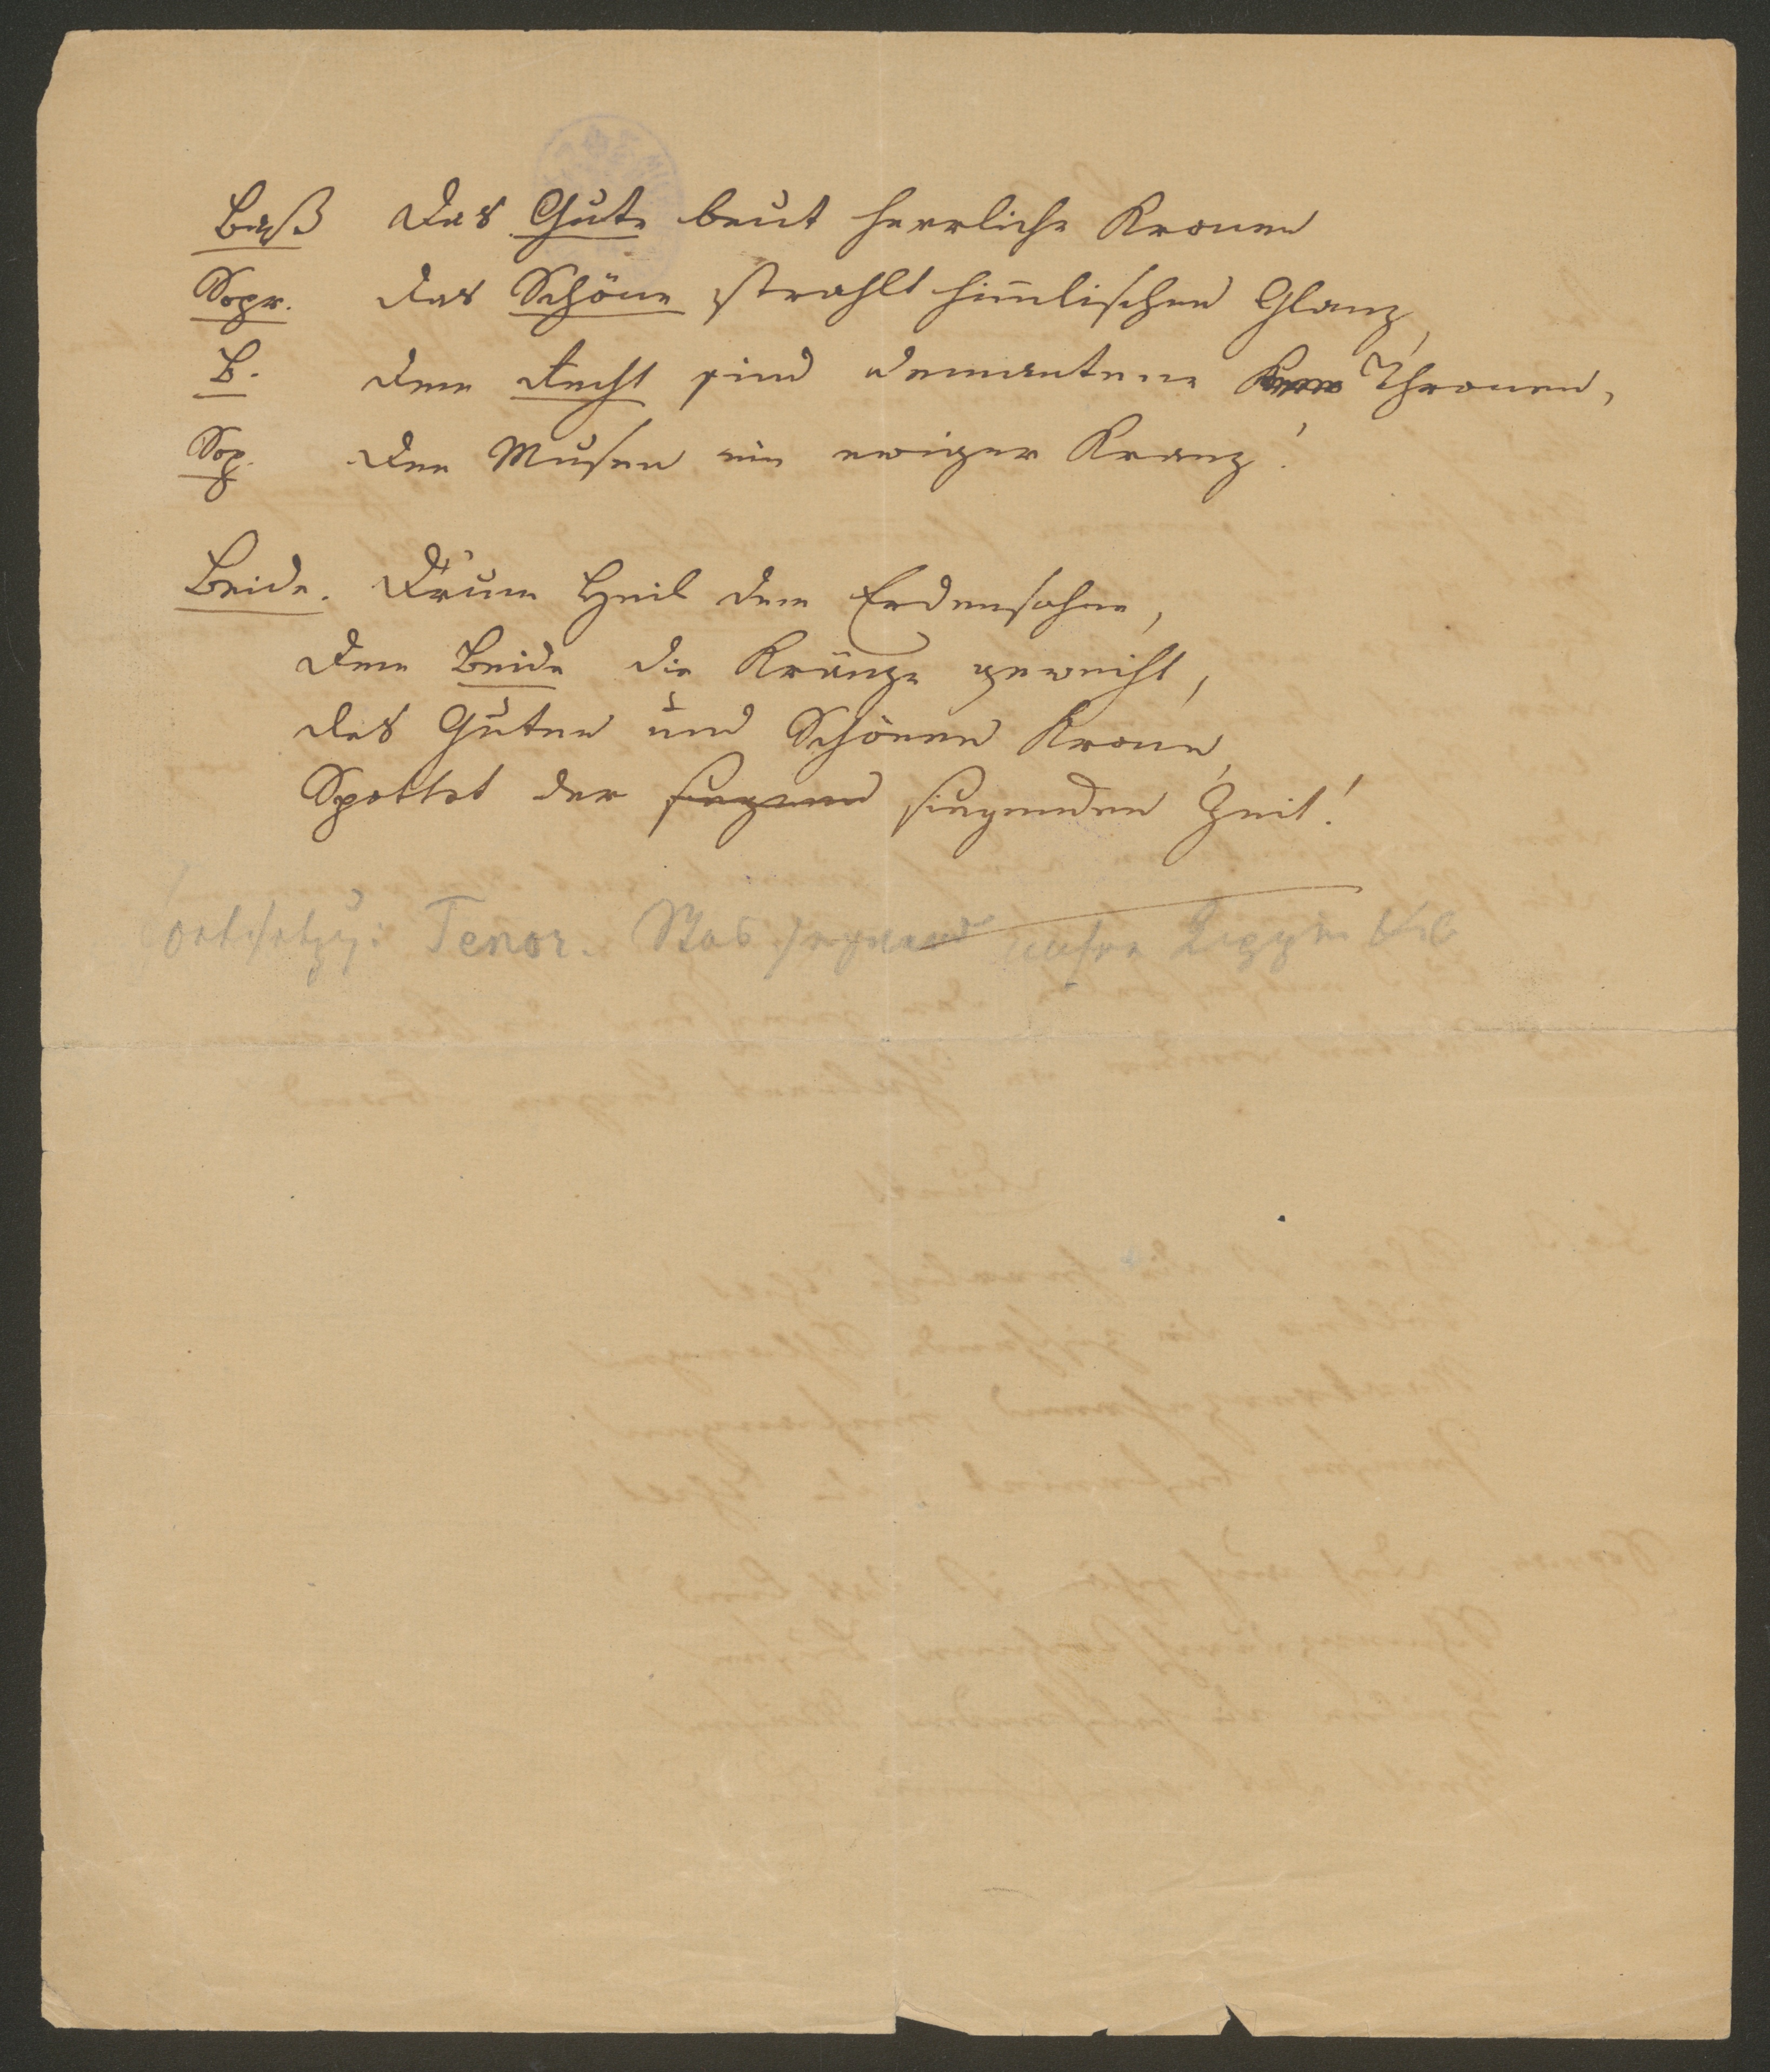 Baß Das Gute beut herrliche Kronen
Sopr. Das Schöne strahlt him̅lischen Glanz,
B. Dem Recht sind demantene Thronen,
Sop. Den Musen ein ewiger Kranz!
Beide. D'rum Heil dem Erdensohne,
Dem Beide die Kränze geweiht,
Des Guten und Schönen Krone,
Spottet der siegend siegenden Zeit!
Fortsetzg: Tenor.